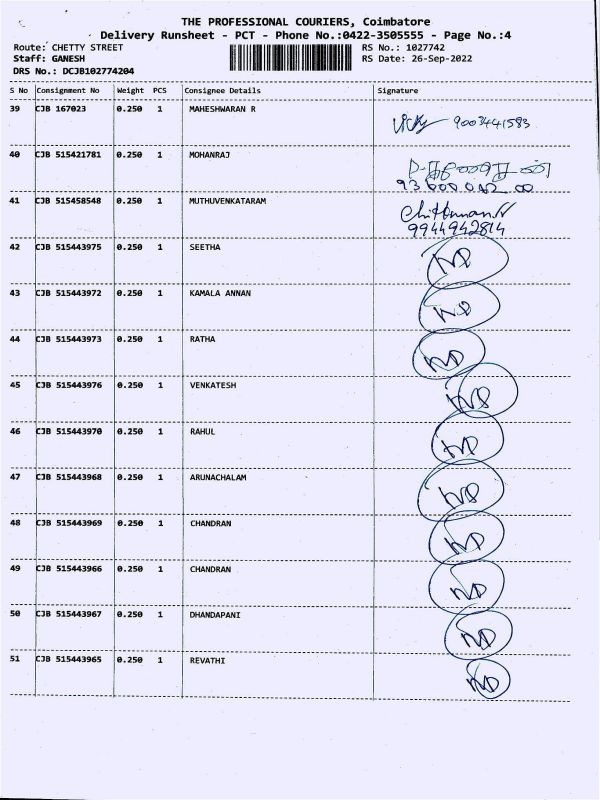 THE PROFESSIONAL COURIERS, Coimbatore
Delivery Runsheet - PCT - Phone No.:0422-3505555 - Page No.:4
Route: CHETTY STREET RS No.: 1027742
Staff: GANESH RS Date: 26-Sep-2022
DRS No.: DCJB102774204
S No Consignment No Weight PCS Consignee Details Signature
39 CJB 167023 0.250 1 MAHESHWARAN R Vicky 9003441583
40 CJB 515421781 0.250 1 MOHANRAJ
41 CJB 515458548 0.250 1 MUTHUVENKATARAM
9944942814
42 CJB 515443975 0.250 1 SEETHA ND
43 CJB 515443972 0.250 1 KAMALA ANNAN ND
44 CJB 515443973 0.250 1 RATHA ND
45 CJB 515443976 0.250 1 VENKATESH ND
46 CJB 515443970 0.250 1 RAHUL ND
47 CJB 515443968 0.250 1 ARUNACHALAM ND
48 CJB 515443969 0.250 1 CHANDRAN ND
49 CJB 515443966 0.250 1 CHANDRAN ND
50 CJB 515443967 0.250 1 DHANDAPANI ND
51 CJB 515443965 0.250 1 REVATHI ND